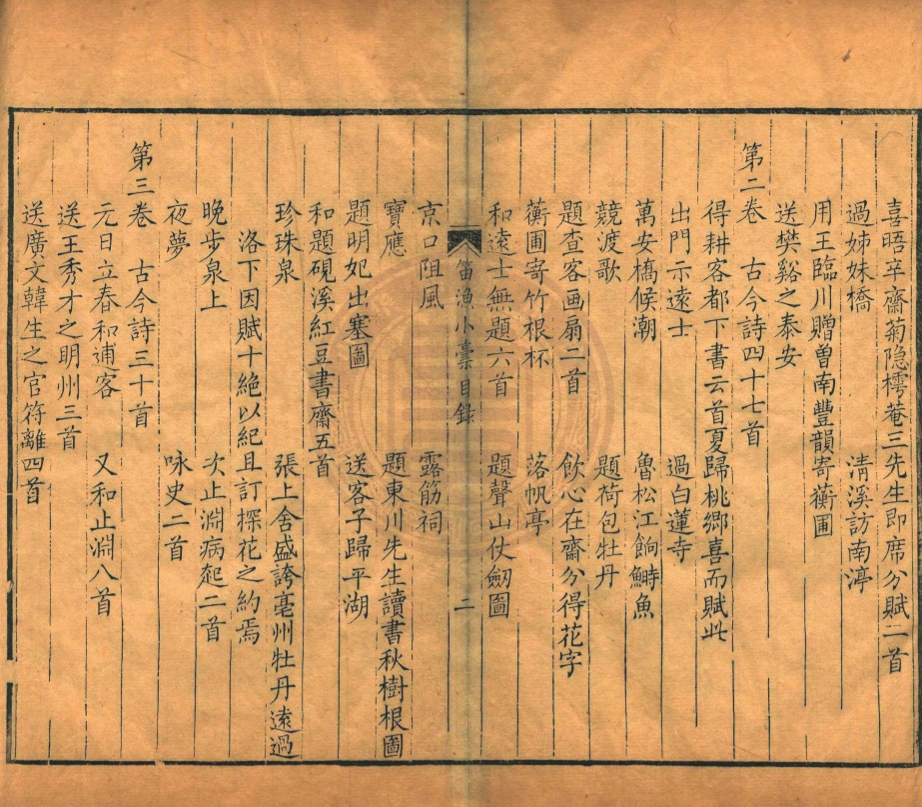 喜晤卒齋菊隐樗菴三先生即席分賦二首
過姊妹橋　清溪訪南渟
用王臨川贈曽南豐韻寄蘅圃
送樊谿之泰安
第二卷　古今詩四十七首
得耕客都下書云首夏歸桃鄉喜而賦此
出門示遠士　過白蓮寺
萬安橋候潮　魯松江餉鰣魚
競渡歌　題荷包牡丹
題查客画扇二首　飲心在齋分得花字
蘅圃寄竹根杯　落帆亭
和遠士無題六首　題聲山仗劒圖
笛漁小稾目録　二
京口阻風　露筋祠
寶應　題東川先生讀書秋樹根圖
題明妃出塞圖　送客子歸平湖
和題硯溪紅豆書齋五首
珍珠泉　張上舍盛誇亳州牡丹遠過
洛下因賦十絶以紀且訂探花之約焉
晚步泉上　次止淵病起二首
夜夢　咏史二首
第三卷　古今詩三十首
元日立春和逋客　又和止淵八首
送王秀才之明州三首
送廣文韓生之官符離四首